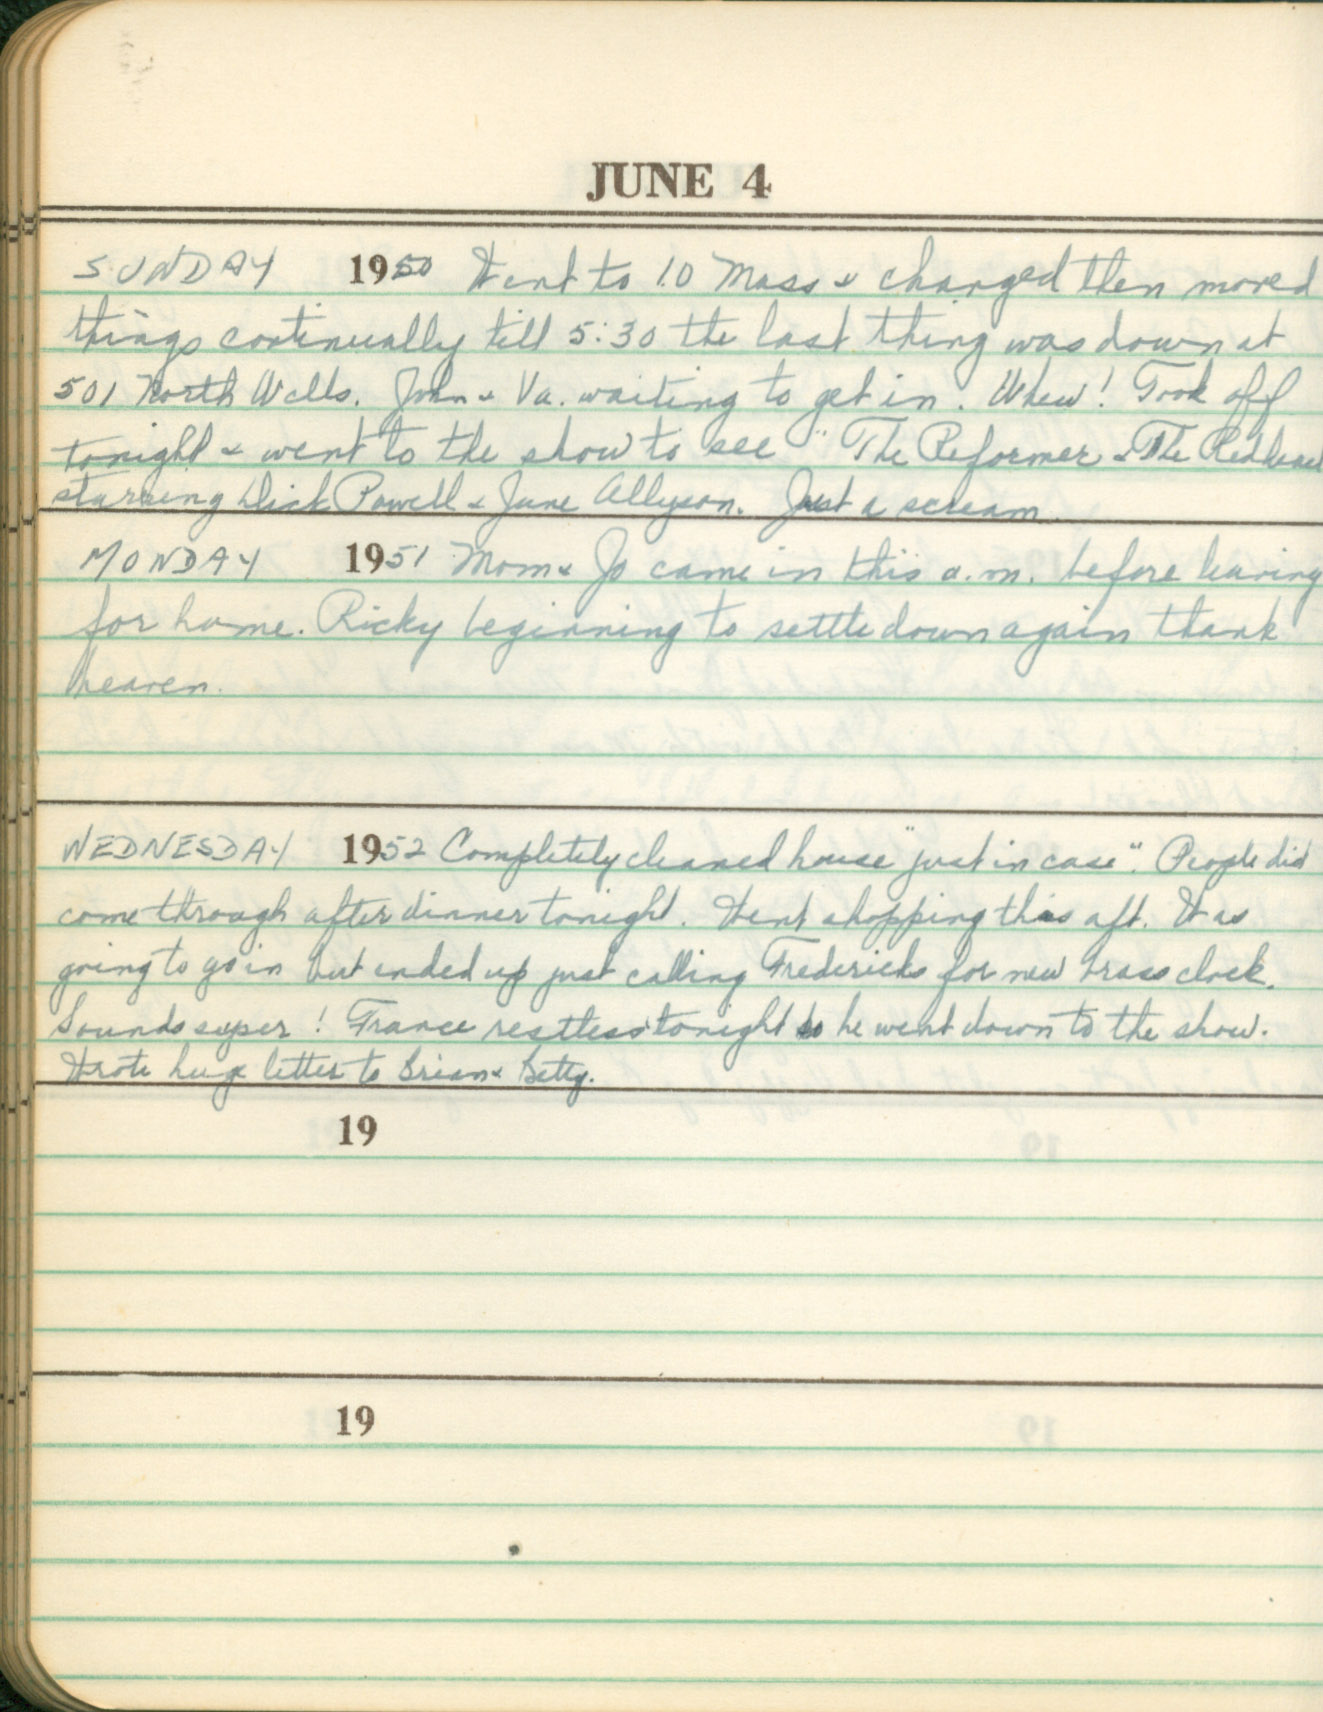 JUNE 4
SUNDAY 1950 Went to 10 Mass & changed then moved
things continually till 5:30 the last thing was down at
501 North Wells. John & Va. waiting to get in. Whew! Took off
tonight & went to the show to see "The Reformer & The Redhead
starring Dick Powell & June Allyson. Just a scream.
MONDAY 1951 Mom & Jo came in this a.m. before leaving
for home. Ricky beginning to settle down again thank
heaven.
WEDNESDAY 1952 Completely cleaned house "just in case". People did
come through after dinner tonight. Went shopping this aft. Was
going to go in but ended up just calling Fredericks for new brass clock.
Sounds super! France restless tonight so he went down to the show.
Wrote huge letter to Brian & Betty.
19
19